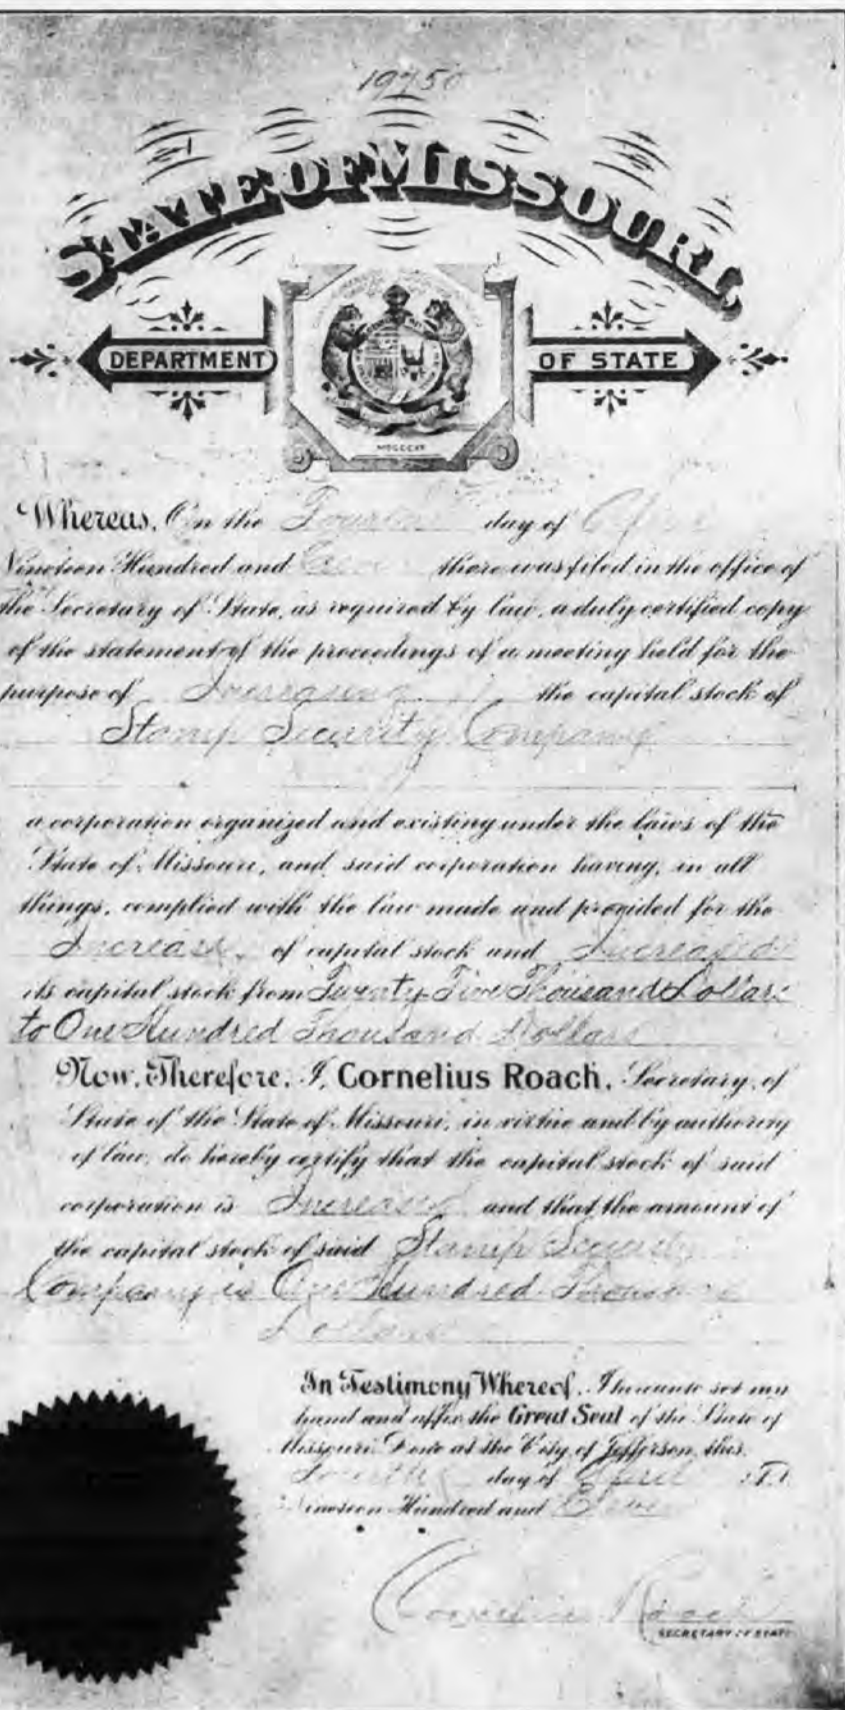 19750
STATE OF MISSOURI.
DEPARTMENT OF STATE
MDCCCXX
Whereas, On the Fourth day of April
Nineteen Hundred and there was filed in the office of
the Secretary of State, as required by law, a duly certified copy
of the statement of the proceedings of a meeting held for the
purpose of Increasing the capital stock of
Stamp Security Company
a corporation organized and existing under the laws of the
State of Missouri, and said corporation having, in all
things, complied with the law made and provided for the
Increase of capital stock and Increased
its capital stock from Twenty Five Thousand Dollars
to One Hundred Thousand Dollars
Now, Therefore, I, Cornelius Roach, Secretary of
State of the State of Missouri, in virtue and by authority
of law, do hereby certify that the capital stock of said
corporation is Increased and that the amount of
the capital stock of said Stamp Security
Company is One Hundred Thousand
Dollars
In Testimony Whereof, I hereunto set my
hand and affix the Great Seal of the State of
Missouri. Done at the City of Jefferson, this
Fourth day of April A.D.
Nineteen Hundred and
Cornelius Roach
SECRETARY OF STATE